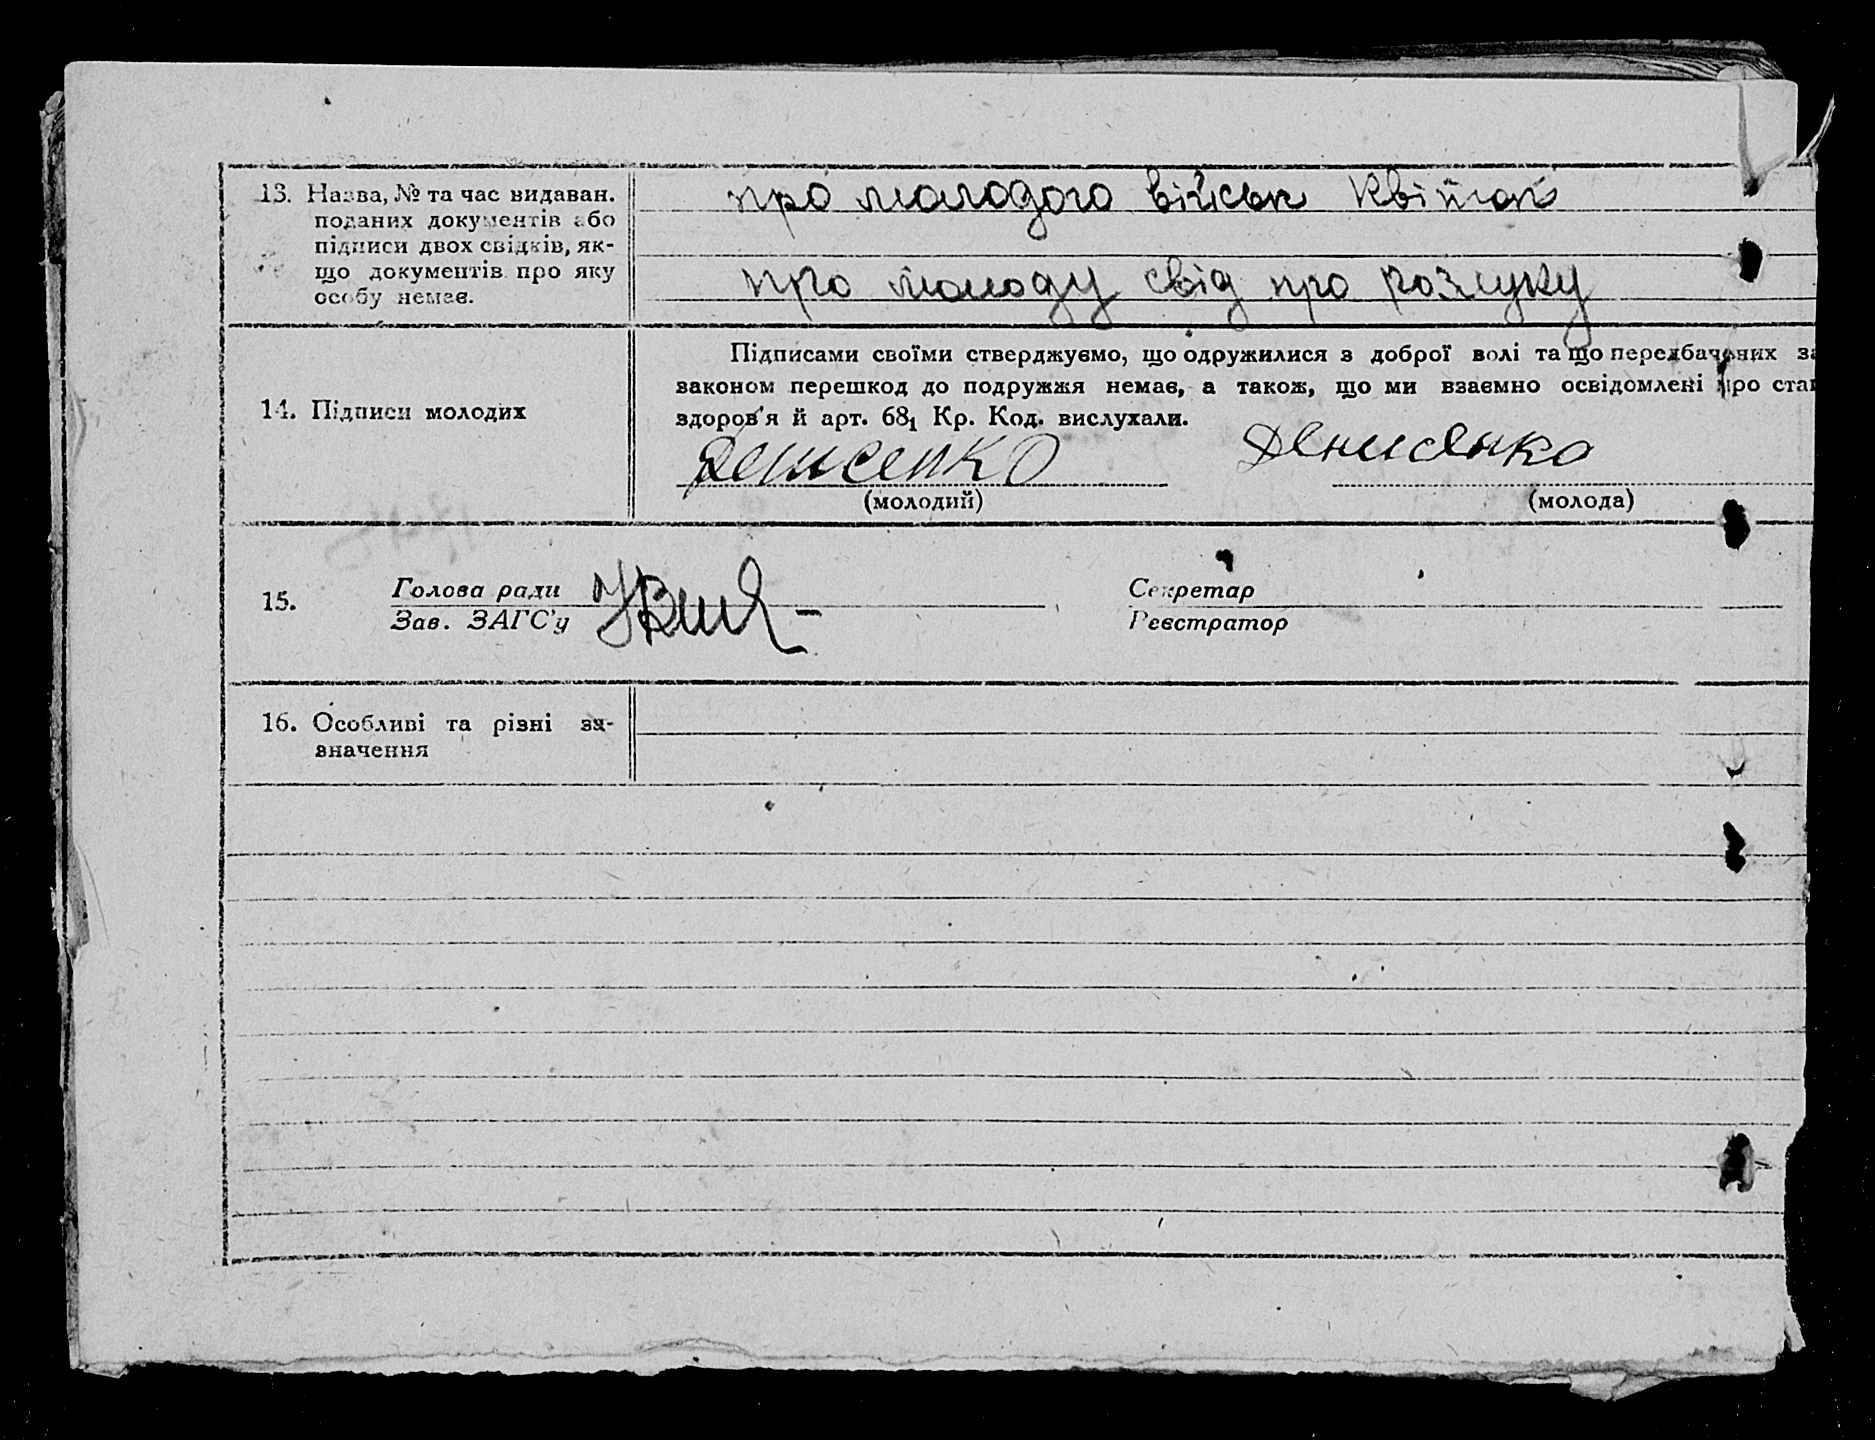 13. Назва, № та час видаван.
поданих документів або
підписи двох свідків, як-
що документів про яку
особу немає.
про молодого військ квіток
про молоду свід про розлуку
14. Підписи молодих
Підписами своїми стверджуємо, що одружилися з доброї волі та що передбачених за
законом перешкод до подружжя немає, а також, що ми взаємно освідомлені про стан
здоров'я й арт. 68₁ Кр. Код. вислухали.
Денисенко Денисенко
(молодий) (молода)
15. Голова ради
Зав. ЗАГС'у
Секретар
Реєстратор
16. Особливі та різні за-
значення